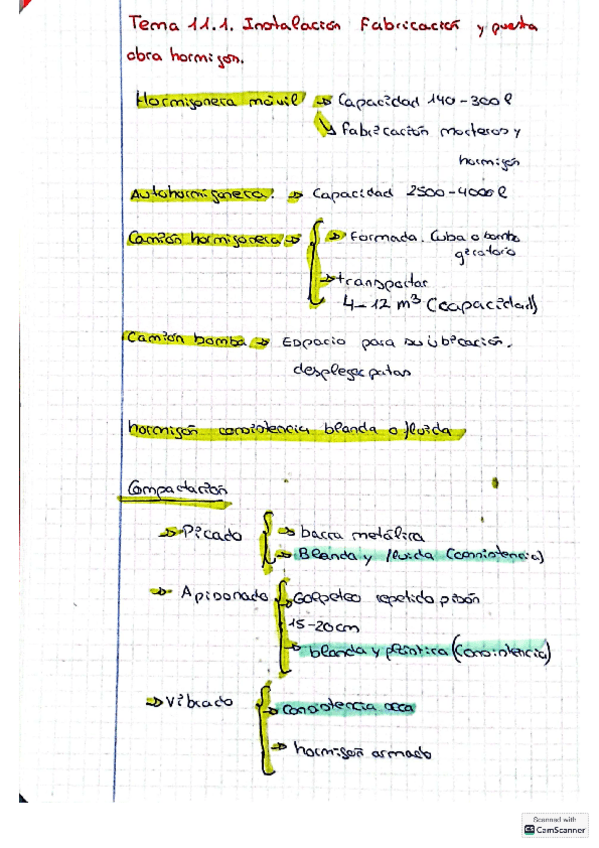 Tema 11.1. Instalación Fabricación y puesta
obra hormigón.
Hormigonera móvil → Capacidad 140-300 l
→ Fabricación morteros y
hormigón
Autohormigonera: → Capacidad 2500-4000 l
Camión hormigonera → → Formada. Cuba o bombo
giratorio
→ transportar
4-12 m³ (capacidad)
Camión bomba → Espacio para su ubicación,
desplegar patas
hormigón consistencia blanda o fluida
Compactación
→ Picado → barra metálica
→ Blanda y fluida (consistencia)
→ Apisonado → Golpeteo repetido pisón
15-20 cm
→ blanda y plástica (consistencia)
→ Vibrado → Consistencia seca
→ hormigón armado
Scanned with
CS CamScanner